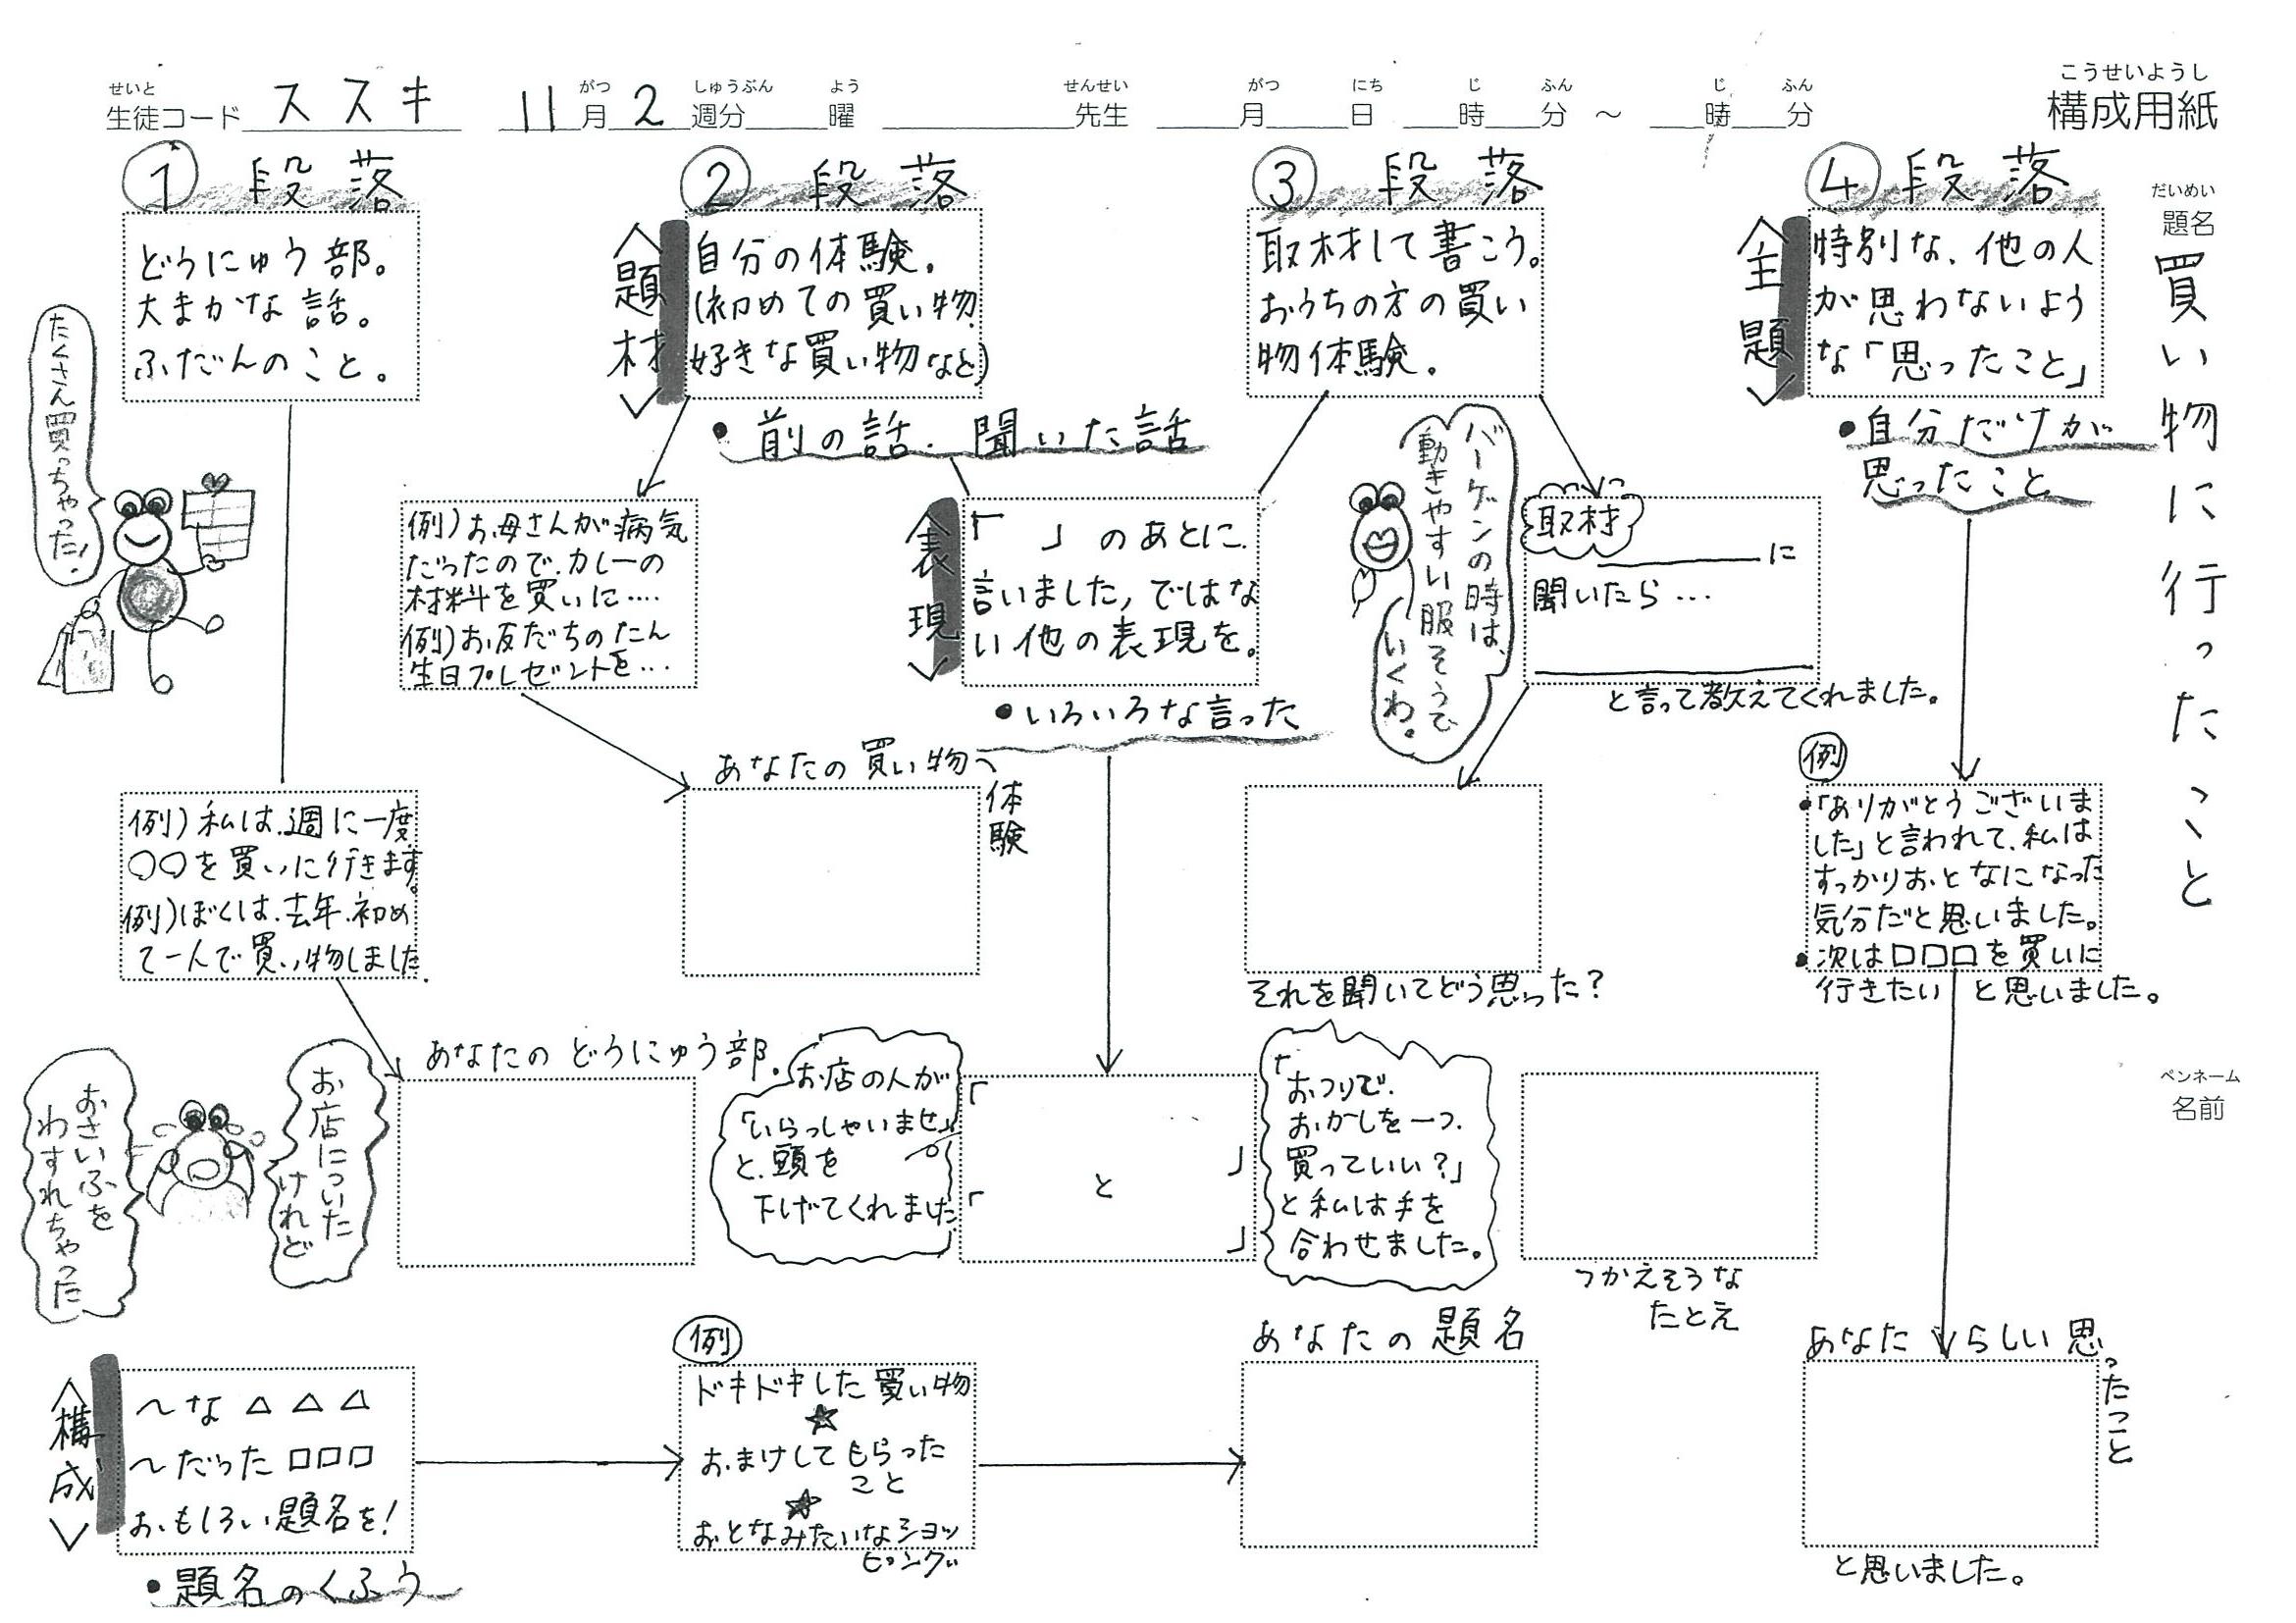 こうせいようし
構成用紙
せいと
生徒コード ススキ 11月 2週分 曜 先生 月 日 時 分 ～ 時 分
がつ しゅうぶん よう せんせい がつ にち じ ふん じ ふん
だいめい
題名
買い物に行ったこと
ペンネーム
名前
① 段落
どうにゅう部。
大まかな話。
ふだんのこと。
たくさん買っちゃった!
例)私は、週に一度
○○を買いに行きます。
例)ぼくは、去年、初め
て一人で買い物しました。
あなたのどうにゅう部。
お店についた
けれど
おさいふを
わすれちゃった
② 段落
<題材>
自分の体験。
(初めての買い物、
好きな買い物など)
・前の話、聞いた話
例)お母さんが病気
だったので、カレーの
材料を買いに‥‥
例)お友だちのたん
生日プレゼントを…
あなたの買い物
体験
<表現>
「 」のあとに、
言いました,ではな
い他の表現を。
・いろいろな言った
お店の人が
「いらっしゃいませ」
と、頭を
下げてくれました。
「
」
と
「
」
「おつりで、
おかしを一つ、
買っていい?」
と私は手を
合わせました。
③ 段落
取材して書こう。
おうちの方の買い
物体験。
バーゲンの時は、
動きやすい服そうで
いくわ。
取材
に
聞いたら…
と言って教えてくれました。
それを聞いてどう思った?
つかえそうな
たとえ
④ 段落
<主題>
特別な、他の人
が思わないよう
な「思ったこと」
・自分だけが
思ったこと
例
・「ありがとうございま
した」と言われて、私は
すっかりおとなになった
気分だと思いました。
・次は□□□を買いに
行きたい と思いました。
あなたらしい思ったこと
と思いました。
<構成>
〜な△△△
〜だった□□□
おもしろい題名を!
・題名のくふう
例
ドキドキした買い物
★
おまけしてもらった
こと
★
おとなみたいなショッ
ピング
あなたの題名